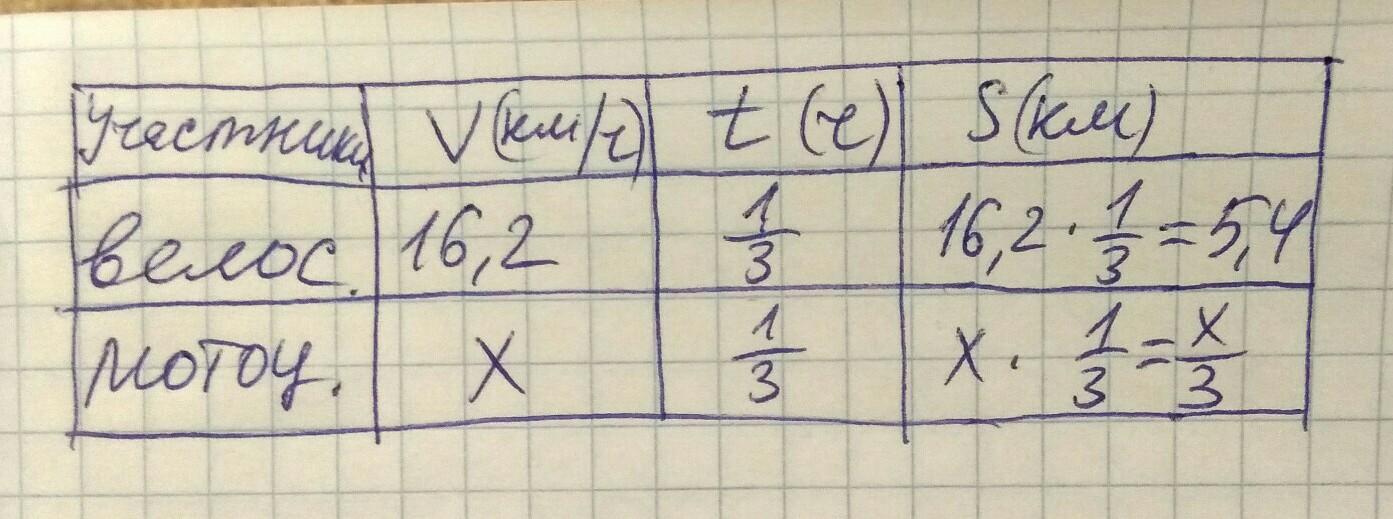 Участники V(км/ч) t (ч) S(км)
велос. 16,2 1/3 16,2 · 1/3 = 5,4
мотоц. x 1/3 x · 1/3 = x/3